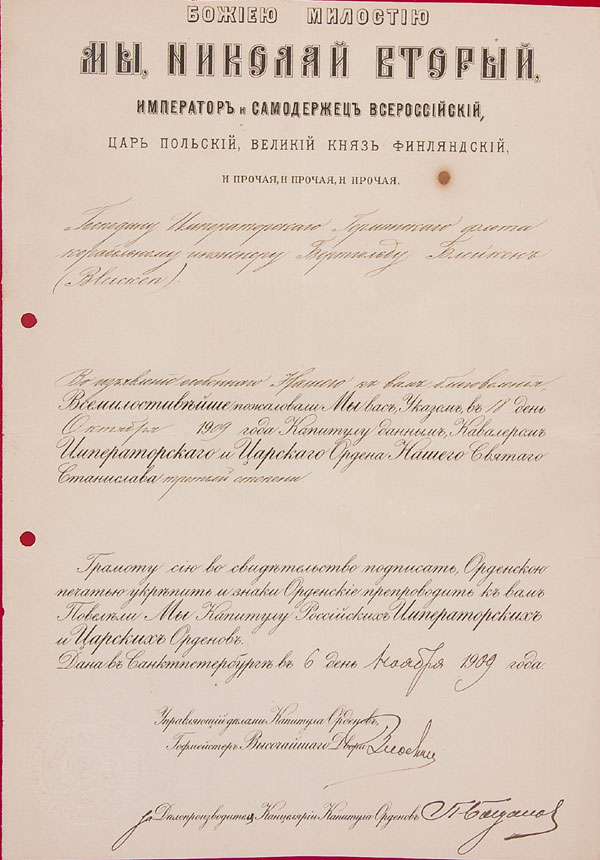 БОЖІЕЮ МИЛОСТІЮ
МЫ, НИКОЛАЙ ВТОРЫЙ,
ИМПЕРАТОРЪ и САМОДЕРЖЕЦЪ ВСЕРОССІЙСКІЙ,
ЦАРЬ ПОЛЬСКІЙ, ВЕЛИКІЙ КНЯЗЬ ФИНЛЯНДСКІЙ,
И ПРОЧАЯ, И ПРОЧАЯ, И ПРОЧАЯ.
Господину Императорскаго Германскаго флота
корабельному инженеру Бертольду Блейкенъ
(Bleicken).
Во изъявленіе особеннаго Нашего къ вамъ благоволенія,
Всемилостивѣйше пожаловали Мы васъ, Указомъ, въ 18 день
Октября 1909 года Капитулу даннымъ, Кавалеромъ
Императорскаго и Царскаго Ордена Нашего Святаго
Станислава третьей степени
Грамоту сію во свидѣтельство подписать, Орденскою
печатью укрѣпить и знаки Орденскіе препроводить къ вамъ
Повелѣли Мы Капитулу Россійскихъ Императорскихъ
и Царскихъ Орденовъ.
Дана въ Санктпетербургѣ, въ 6 день Ноября 1909 года.
Управляющій дѣлами Капитула Орденовъ,
Гофмейстеръ Высочайшаго Двора
Дѣлопроизводителя Канцеляріи Капитула Орденовъ